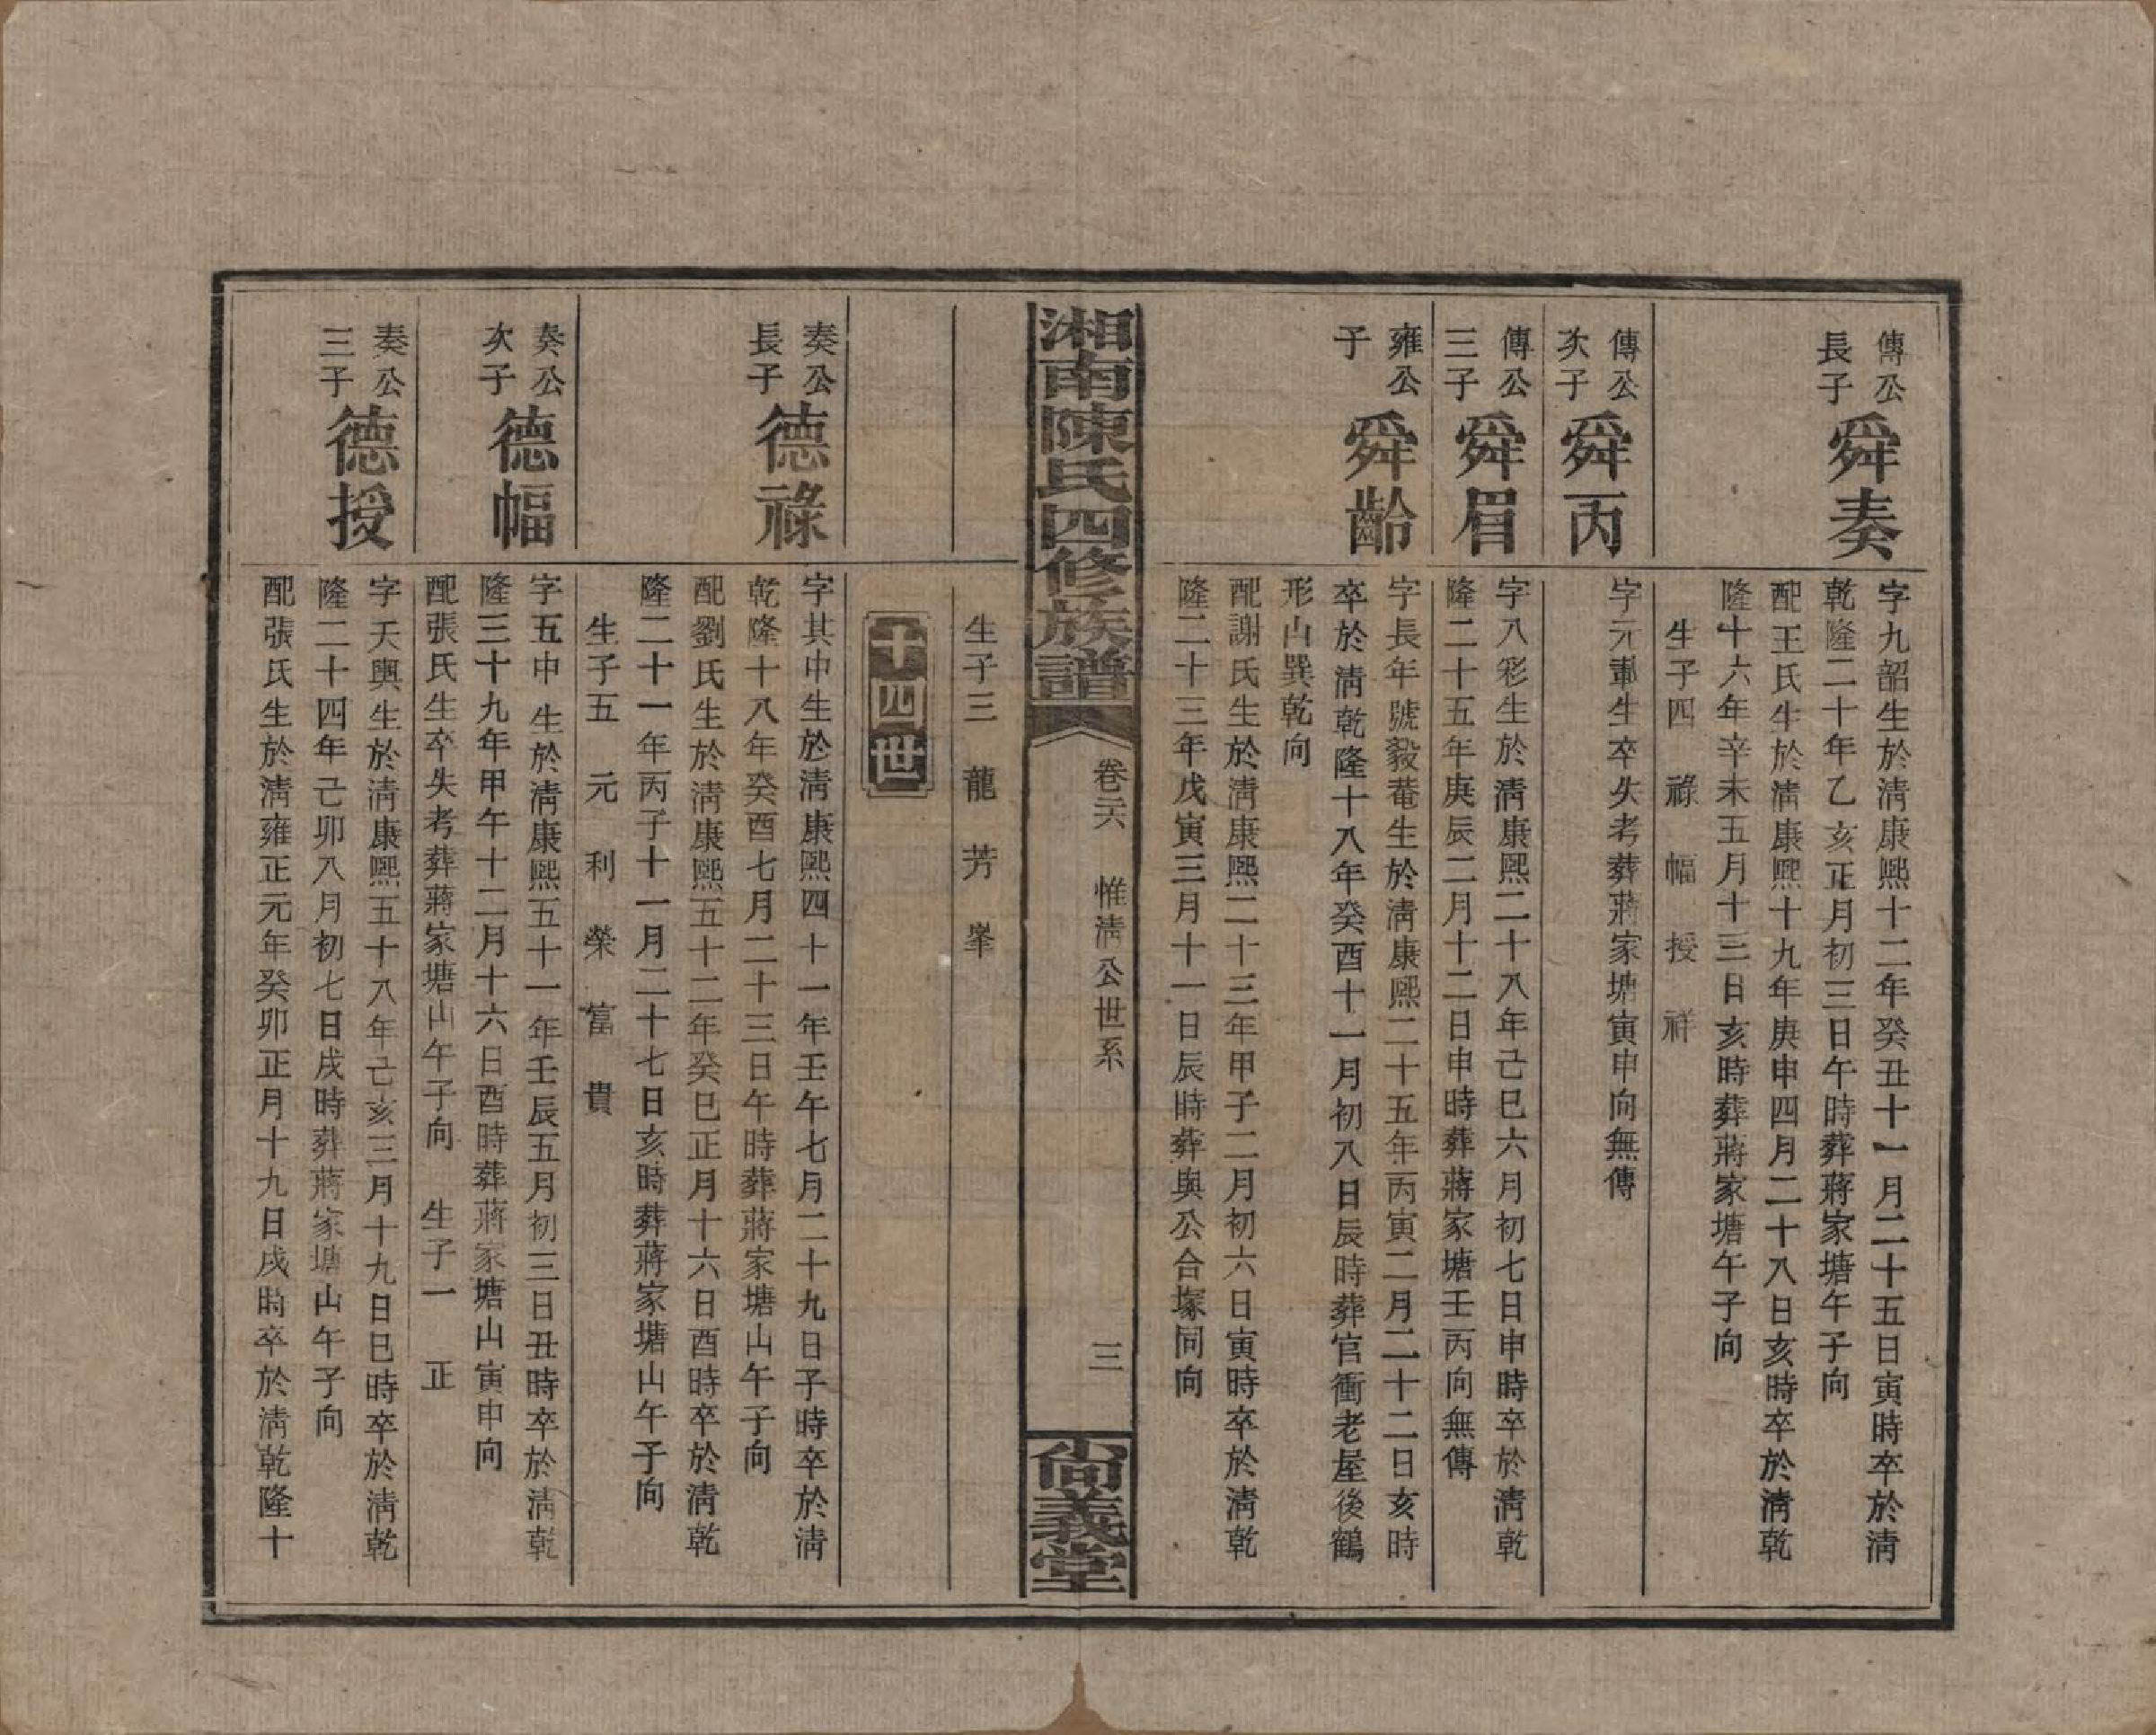 傳公
長子
舜奏
字九韶生於淸康熙十二年癸丑十一月二十五日寅時卒於淸
乾隆二十年乙亥正月初三日午時葬蔣家塘午子向
配王氏生於淸康熙十九年庚申四月二十八日亥時卒於淸乾
隆十六年辛未五月十三日亥時葬蔣家塘午子向
生子四 祿 幅 授 祥
傳公
次子
舜丙
字元車生卒失考葬蔣家塘寅申向無傳
傳公
三子
舜眉
字八彩生於淸康熙二十八年己巳六月初七日申時卒於淸乾
隆二十五年庚辰二月十二日申時葬蔣家塘壬丙向無傳
雍公
子
舜齡
字長年號毅菴生於淸康熙二十五年丙寅二月二十二日亥時
卒於淸乾隆十八年癸酉十一月初八日辰時葬官衝老屋後鶴
形山巽乾向
配謝氏生於淸康熙二十三年甲子二月初六日寅時卒於淸乾
隆二十三年戊寅三月十一日辰時葬與公合塚同向
湘南陳氏四修族譜
卷六 惟淸公世系
三
尙義堂
生子三 龍 芳 峯
十四世
奏公
長子
德祿
字其中生於淸康熙四十一年壬午七月二十九日子時卒於淸
乾隆十八年癸酉七月二十三日午時葬蔣家塘山午子向
配劉氏生於淸康熙五十二年癸巳正月十六日酉時卒於淸乾
隆二十一年丙子十一月二十七日亥時葬蔣家塘山午子向
生子五 元 利 榮 富 貴
奏公
次子
德幅
字五中生於淸康熙五十一年壬辰五月初三日丑時卒於淸乾
隆三十九年甲午十二月十六日酉時葬蔣家塘山寅申向
配張氏生卒失考葬蔣家塘山午子向 生子一 正
奏公
三子
德授
字天與生於淸康熙五十八年己亥三月十九日巳時卒於淸乾
隆二十四年己卯八月初七日戌時葬蔣家塘山午子向
配張氏生於淸雍正元年癸卯正月十九日戌時卒於淸乾隆十